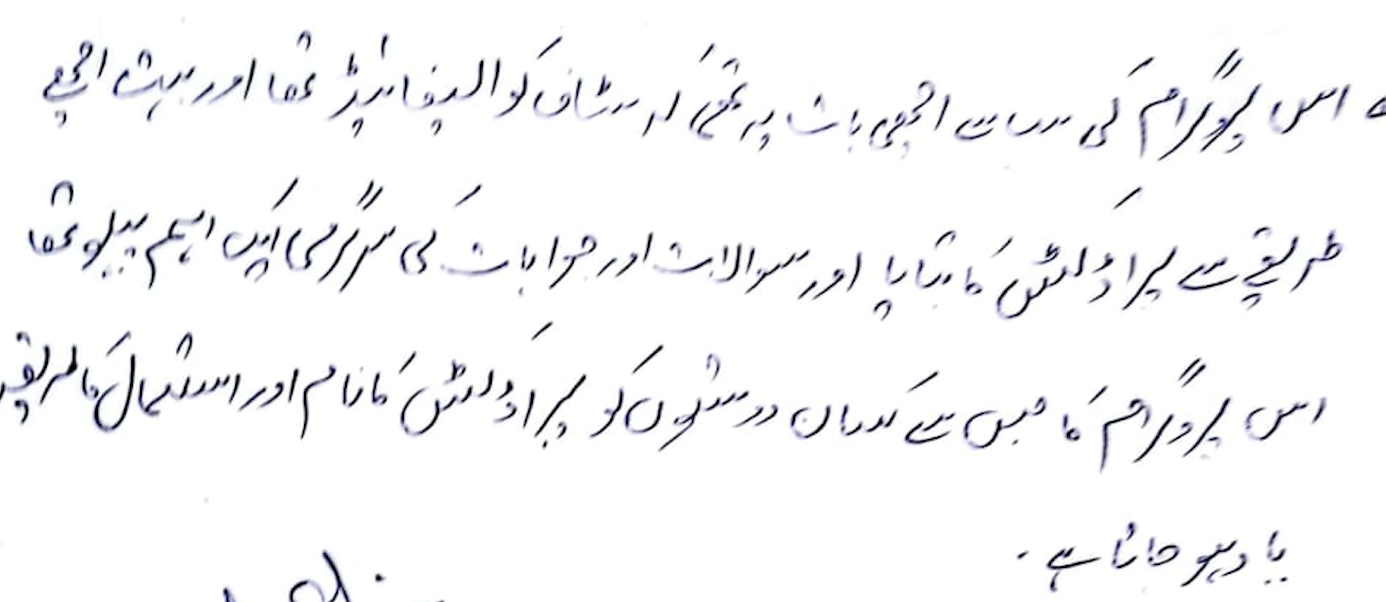 اس پروگرام کی سب سے اچھی بات یہ تھی کہ سٹاف کوالیفائیڈ تھا اور بہت اچھے
طریقے سے پراڈکٹس کا بتایا اور سوالات اور جوابات کی سرگرمی ایک اہم پہلو تھا
اس پروگرام کا جس سے کسان دوستوں کو پراڈکٹس کا نام اور استعمال کا طریقہ
یاد ہو جاتا ہے۔